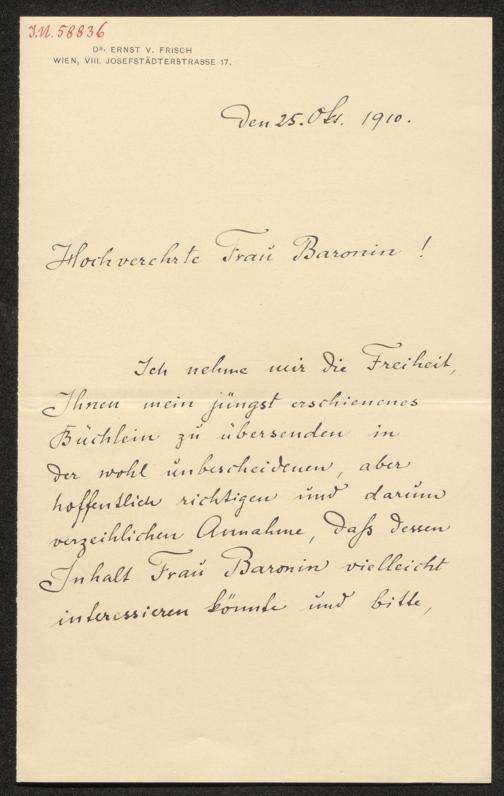 J.N. 58836
DR. ERNST V. FRISCH
WIEN, VIII. JOSEFSTÄDTERSTRASSE 17.
Den 25. Okt. 1910.
Hochverehrte Frau Baronin !
Ich nehme mir die Freiheit,
Ihnen mein jüngst erschienenes
Büchlein zu übersenden in
der wohl unbescheidenen, aber
hoffentlich richtigen und darum
verzeihlichen Annahme, daß dessen
Inhalt Frau Baronin vielleicht
interessieren könnte und bitte,